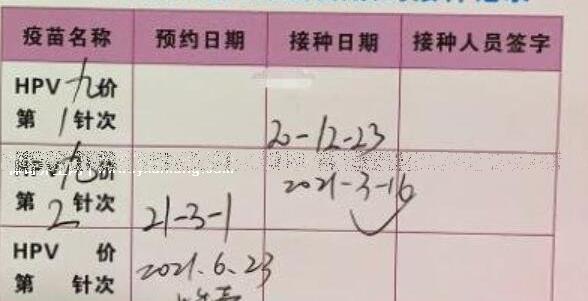 疫苗名称 预约日期 接种日期 接种人员签字
HPV 九价
第 1 针次 20-12-23
HPV 九价 2021-3-16
第 2 针次 21-3-1
HPV 价 2021.6.23
第 针次